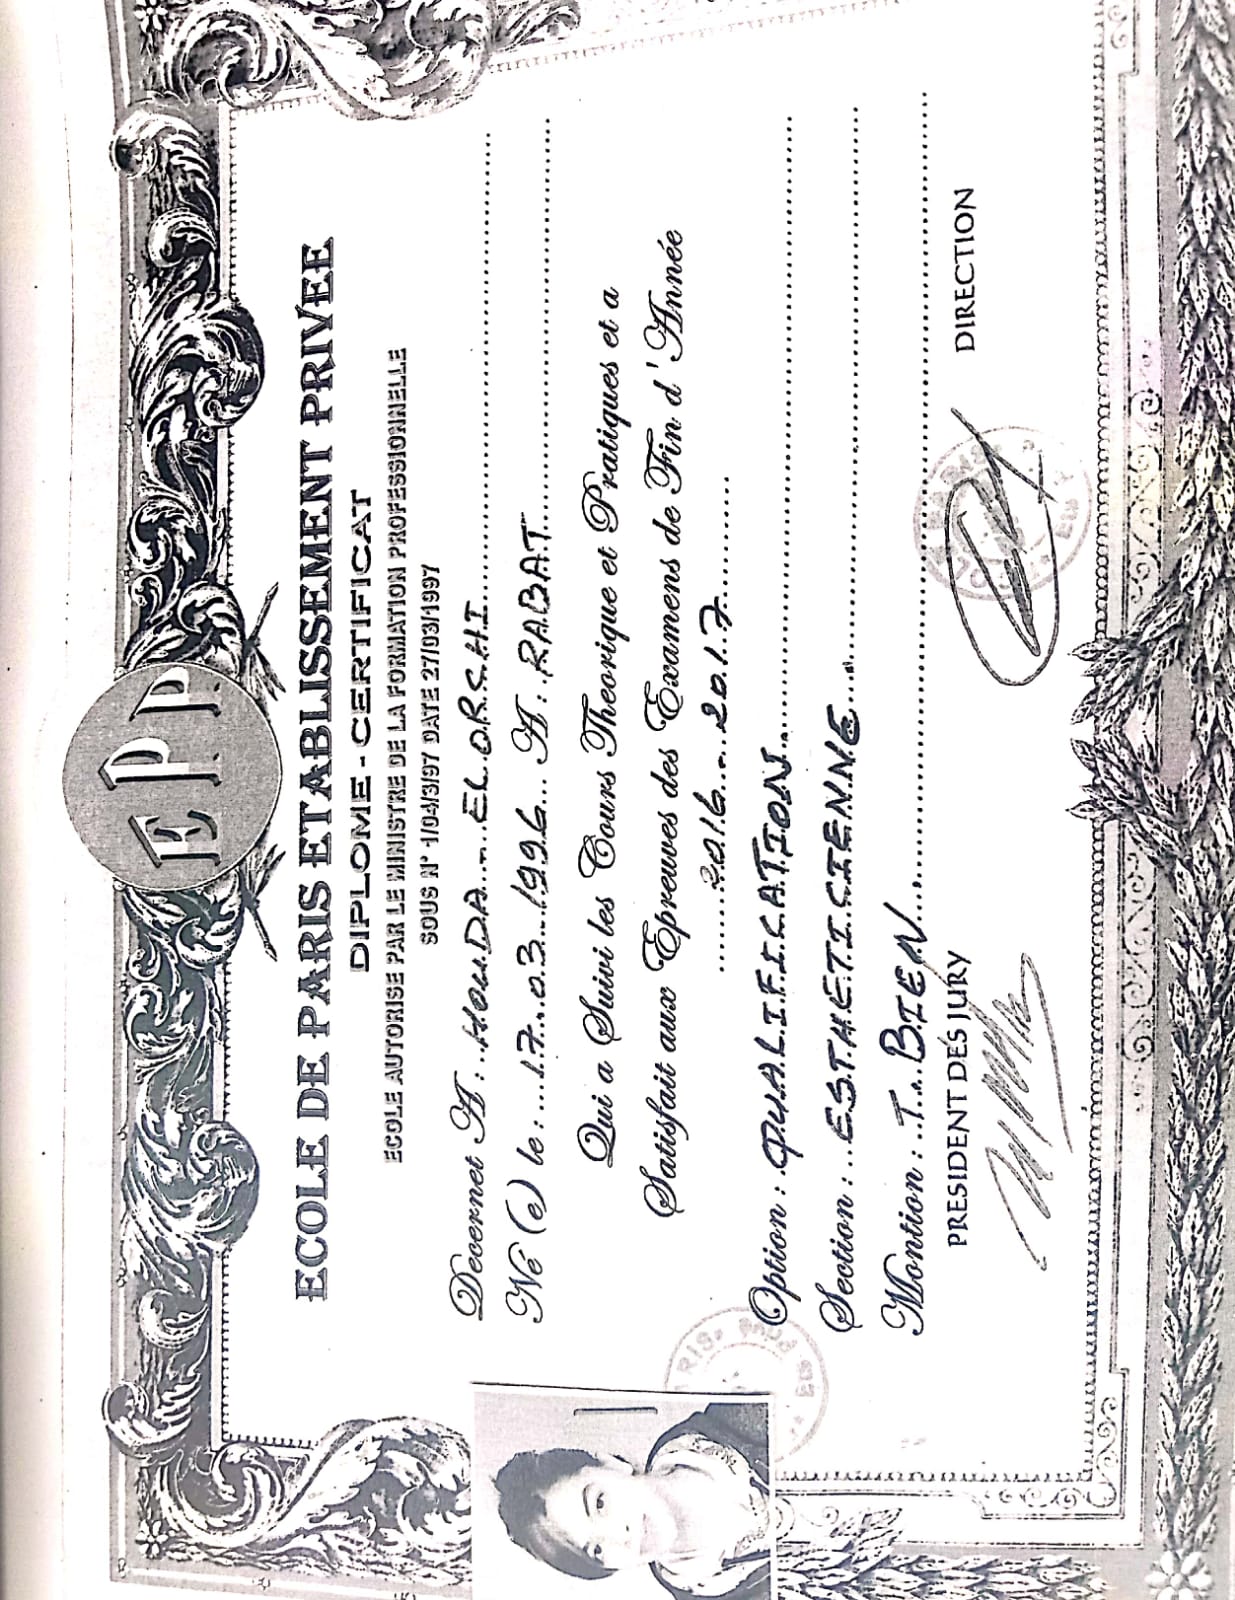 EPP
ECOLE DE PARIS ETABLISSEMENT PRIVEE
DIPLOME - CERTIFICAT
ECOLE AUTORISE PAR LE MINISTRE DE LA FORMATION PROFESSIONNELLE
SOUS N° 1/04/3/97 DATE 27/03/1997
Decernet A : HOUDA EL ORCHI
Né (e) le : 17.03.1996 A : RABAT
Qui a Suivi les Cours Theorique et Pratiques et a
Satisfait aux Epreuves des Examens de Fin d'Année
2016 - 2017
Option : QUALIFICATION
Section : ESTHETICIENNE
Montion : T. BIEN
PRESIDENT DES JURY DIRECTION